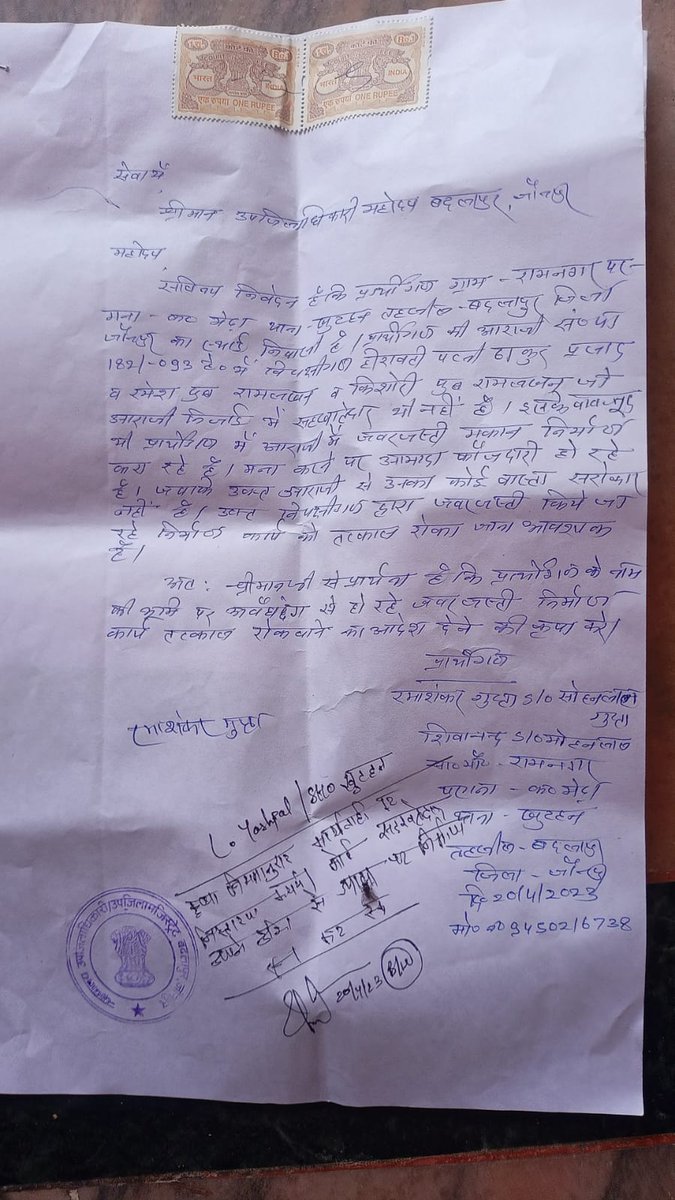 भारत INDIA
एक रुपया ONE RUPEE
भारत INDIA
एक रुपया ONE RUPEE
सेवा में,
श्रीमान उपजिलाधिकारी महोदय बदलापुर, जौनपुर
महोदय,
सविनय निवेदन है कि प्रार्थीगण ग्राम - रामनगर पर-
गना - क० मेढ़ा थाना - खुटहन तहसील - बदलापुर जिला
जौनपुर का स्थाई निवासी है। प्रार्थीगण की आराजी संख्या
182/-093 हे० में विपक्षीगण हीरावती पत्नी ठाकुर प्रसाद
व रमेश पुत्र रामलखन व किशोरी पुत्र रामलखन जो
आराजी निजाई में सहखातेदार भी नहीं हैं। इसके बावजूद
भी प्रार्थीगण में आराजी में जबरजस्ती मकान निर्माण
करा रहे हैं। मना करने पर आमादा फौजदारी हो रहे
हैं। जबकि उक्त आराजी से उनका कोई वास्ता सरोकार
नहीं है। उक्त विपक्षीगण द्वारा जबरजस्ती किये जा
रहे निर्माण कार्य को तत्काल रोका जाना आवश्यक
है।
अतः श्रीमानजी से प्रार्थना है कि प्रार्थीगण के नाम
की भूमि पर अवैधढंग से हो रहे जबरजस्ती निर्माण
कार्य तत्काल रोकवाने का आदेश देने की कृपा करें।
प्रार्थीगण
रमाशंकर गुप्ता S/O सोहनलाल
गुप्ता
रमाशंकर गुप्ता
शिवानन्द S/O मोहनलाल
सा० मौ० - रामनगर
परगना - क० मेढ़ा
थाना - खुटहन
तहसील - बदलापुर
जिला - जौनपुर
दि० 20/4/2023
मो० न० 9450216738
Lo Yashpal / SHO खुटहन
कृपया नियमानुसार कार्यवाही कर
20/4/23